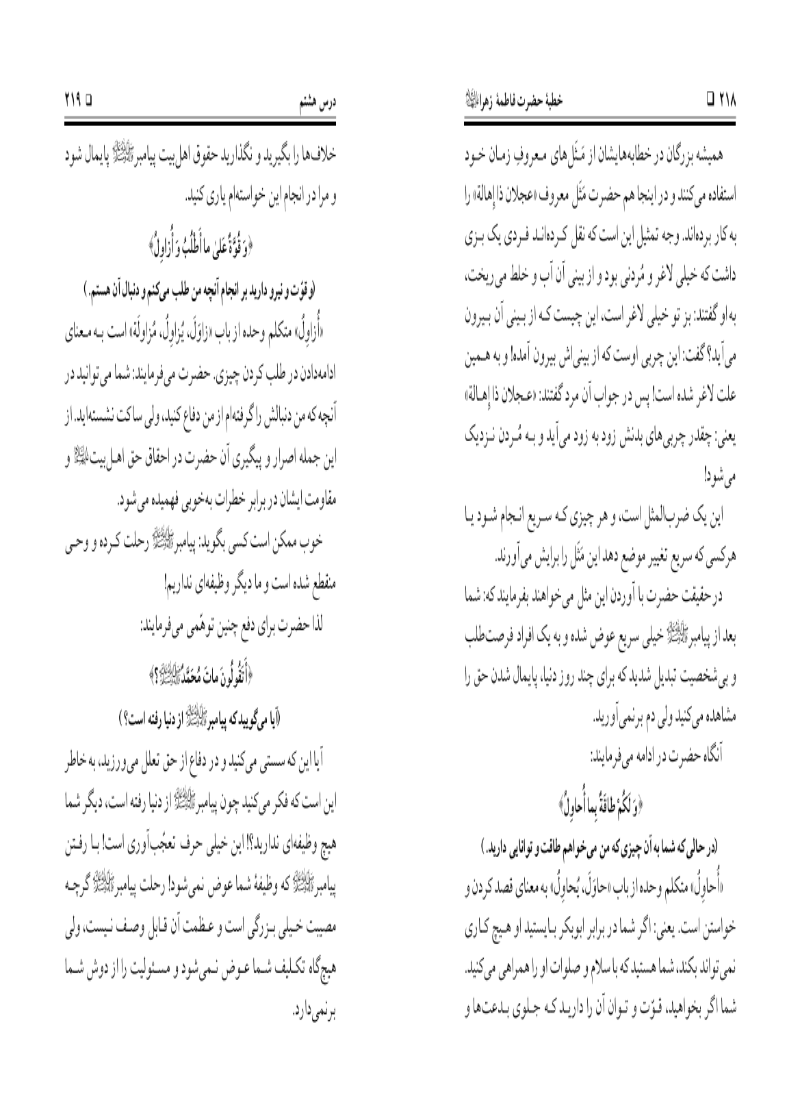 ۲۱۸ ❑ خطبهٔ حضرت فاطمهٔ زهراﷺ
همیشه بزرگان در خطابه‌هایشان از مَثَل‌های معروفِ زمان خود
استفاده می‌کنند و در اینجا هم حضرت مَثَل معروف «عجلان ذا إهالة» را
به کار برده‌اند. وجه تمثیل این است که نقل کرده‌اند فردی یک بزی
داشت که خیلی لاغر و مُردنی بود و از بینی آن آب و خلط می‌ریخت،
به او گفتند: بز تو خیلی لاغر است، این چیست که از بینی آن بیرون
می‌آید؟ گفت: این چربی اوست که از بینی‌اش بیرون آمده! و به همین
علت لاغر شده است! پس در جواب آن مرد گفتند: «عجلان ذا إهالة»
یعنی: چقدر چربی‌های بدنش زود به زود می‌آید و به مُردن نزدیک
می‌شود!
این یک ضرب‌المثل است، و هر چیزی که سریع انجام شود یا
هرکسی که سریع تغییر موضع دهد این مَثَل را برایش می‌آورند.
در حقیقت حضرت با آوردن این مثل می‌خواهند بفرمایند که: شما
بعد از پیامبرﷺ خیلی سریع عوض شده و به یک افراد فرصت‌طلب
و بی‌شخصیت تبدیل شدید که برای چند روز دنیا، پایمال شدن حق را
مشاهده می‌کنید ولی دم برنمی‌آورید.
آنگاه حضرت در ادامه می‌فرمایند:
﴿وَ لَكُمْ طاقَةٌ بِما أُحاوِلُ﴾
(در حالی که شما به آن چیزی که من می‌خواهم طاقت و توانایی دارید.)
«أُحاوِلُ» متکلم وحده از باب «حاوَلَ، یُحاوِلُ» به معنای قصد کردن و
خواستن است. یعنی: اگر شما در برابر ابوبکر بایستید او هیچ کاری
نمی‌تواند بکند، شما هستید که با سلام و صلوات او را همراهی می‌کنید.
شما اگر بخواهید، قوّت و توان آن را دارید که جلوی بدعت‌ها و
درس هشتم ❑ ۲۱۹
خلاف‌ها را بگیرید و نگذارید حقوق اهل‌بیت پیامبرﷺ پایمال شود
و مرا در انجام این خواسته‌ام یاری کنید.
﴿وَ قُوَّةٌ عَلىٰ ما أَطْلُبُ وَ أُزاوِلُ﴾
(و قوّت و نیرو دارید بر انجام آنچه من طلب می‌کنم و دنبال آن هستم.)
«أُزاوِلُ» متکلم وحده از باب «زاوَلَ، یُزاوِلُ، مُزاوِلَة» است به معنای
ادامه‌دادن در طلب کردن چیزی. حضرت می‌فرمایند: شما می‌توانید در
آنچه که من دنبالش را گرفته‌ام از من دفاع کنید، ولی ساکت نشسته‌اید. از
این جمله اصرار و پیگیری آن حضرت در احقاق حق اهل‌بیت و
مقاومت ایشان در برابر خطرات به‌خوبی فهمیده می‌شود.
خوب ممکن است کسی بگوید: پیامبرﷺ رحلت کرده و وحی
منقطع شده است و ما دیگر وظیفه‌ای نداریم!
لذا حضرت برای دفع چنین توهّمی می‌فرمایند:
﴿أَتَقُولُونَ ماتَ مُحَمَّدٌﷺ؟﴾
(آیا می‌گویید که پیامبرﷺ از دنیا رفته است؟)
آیا این که سستی می‌کنید و در دفاع از حق تعلل می‌ورزید، به خاطر
این است که فکر می‌کنید چون پیامبرﷺ از دنیا رفته است، دیگر شما
هیچ وظیفه‌ای ندارید؟! این خیلی حرف تعجّب‌آوری است! با رفتن
پیامبرﷺ که وظیفهٔ شما عوض نمی‌شود! رحلت پیامبرﷺ گرچه
مصیبت خیلی بزرگی است و عظمت آن قابل وصف نیست، ولی
هیچ‌گاه تکلیف شما عوض نمی‌شود و مسئولیت را از دوش شما
برنمی‌دارد.